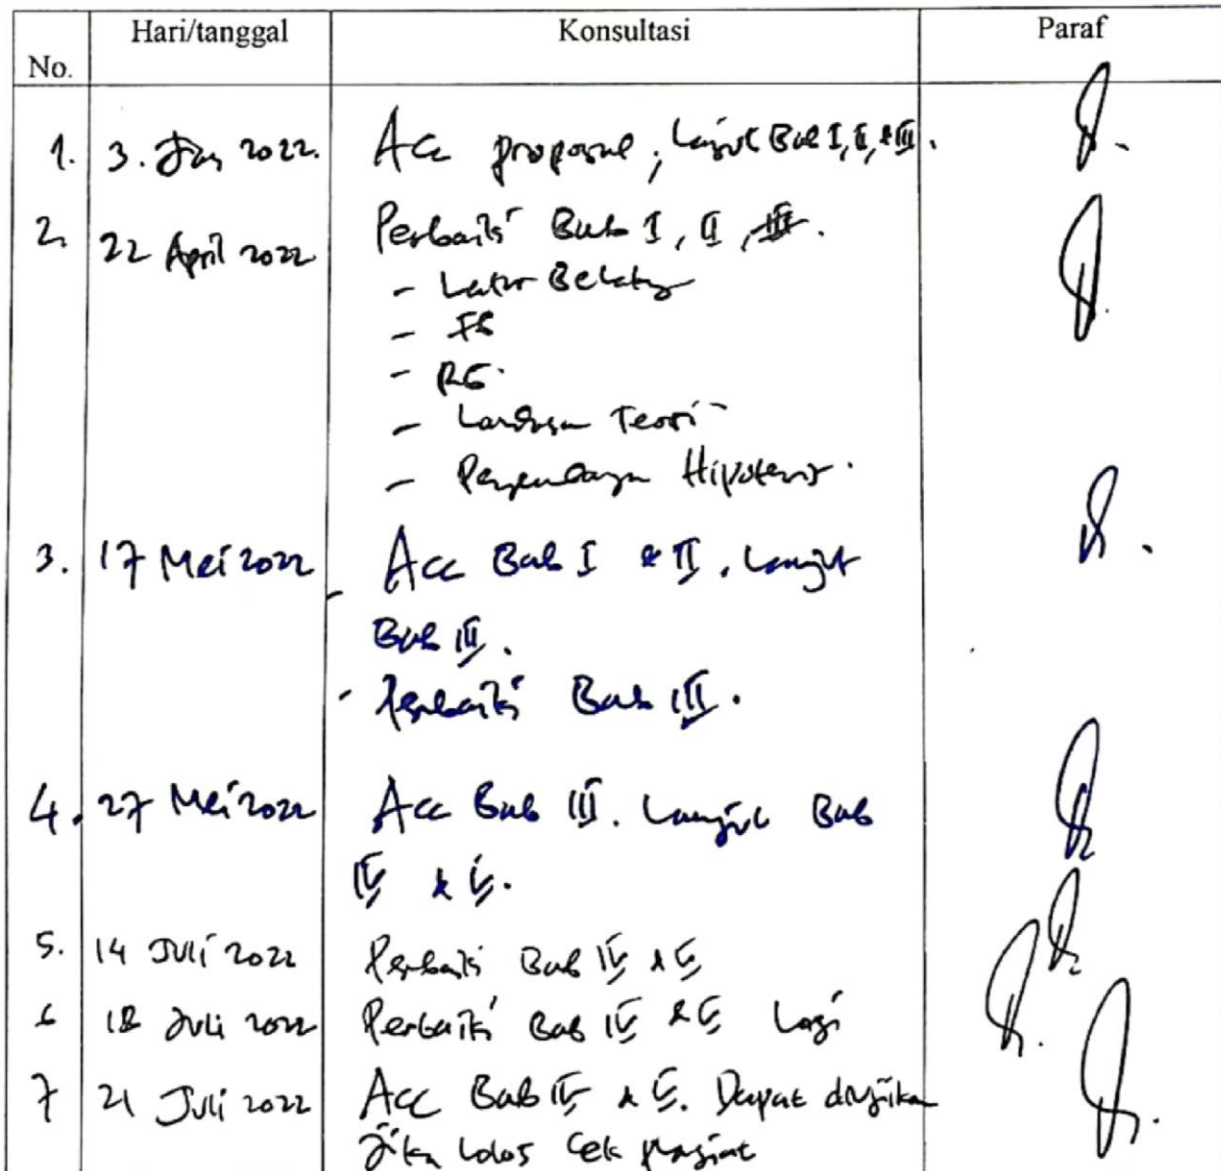 No. Hari/tanggal Konsultasi Paraf
1. 3. Jan 2022. Acc proposal, Lanjut Bab I, II, & III.
2. 22 April 2022 Perbaiki Bab I, II, III.
- Latar Belakang
- Landasan Teori
- Hipotesis.
3. 17 Mei 2022 - Acc Bab I & II. Lanjut
Bab III.
- Perbaiki Bab III.
4. 27 Mei 2022 Acc Bab III. Lanjut Bab
IV & V.
5. 14 Juli 2022 Perbaiki Bab IV & V
6 18 Juli 2022 Perbaiki Bab IV & V Lagi
7 21 Juli 2022 Acc Bab IV & V. Dapat diujikan
Jika Lolos Cek plagiat